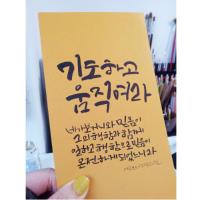 기도하고
움직여라
네가 보거니와 믿음이
그의 행함과 함께
일하고 행함으로 믿음이
온전하게 되었느니라